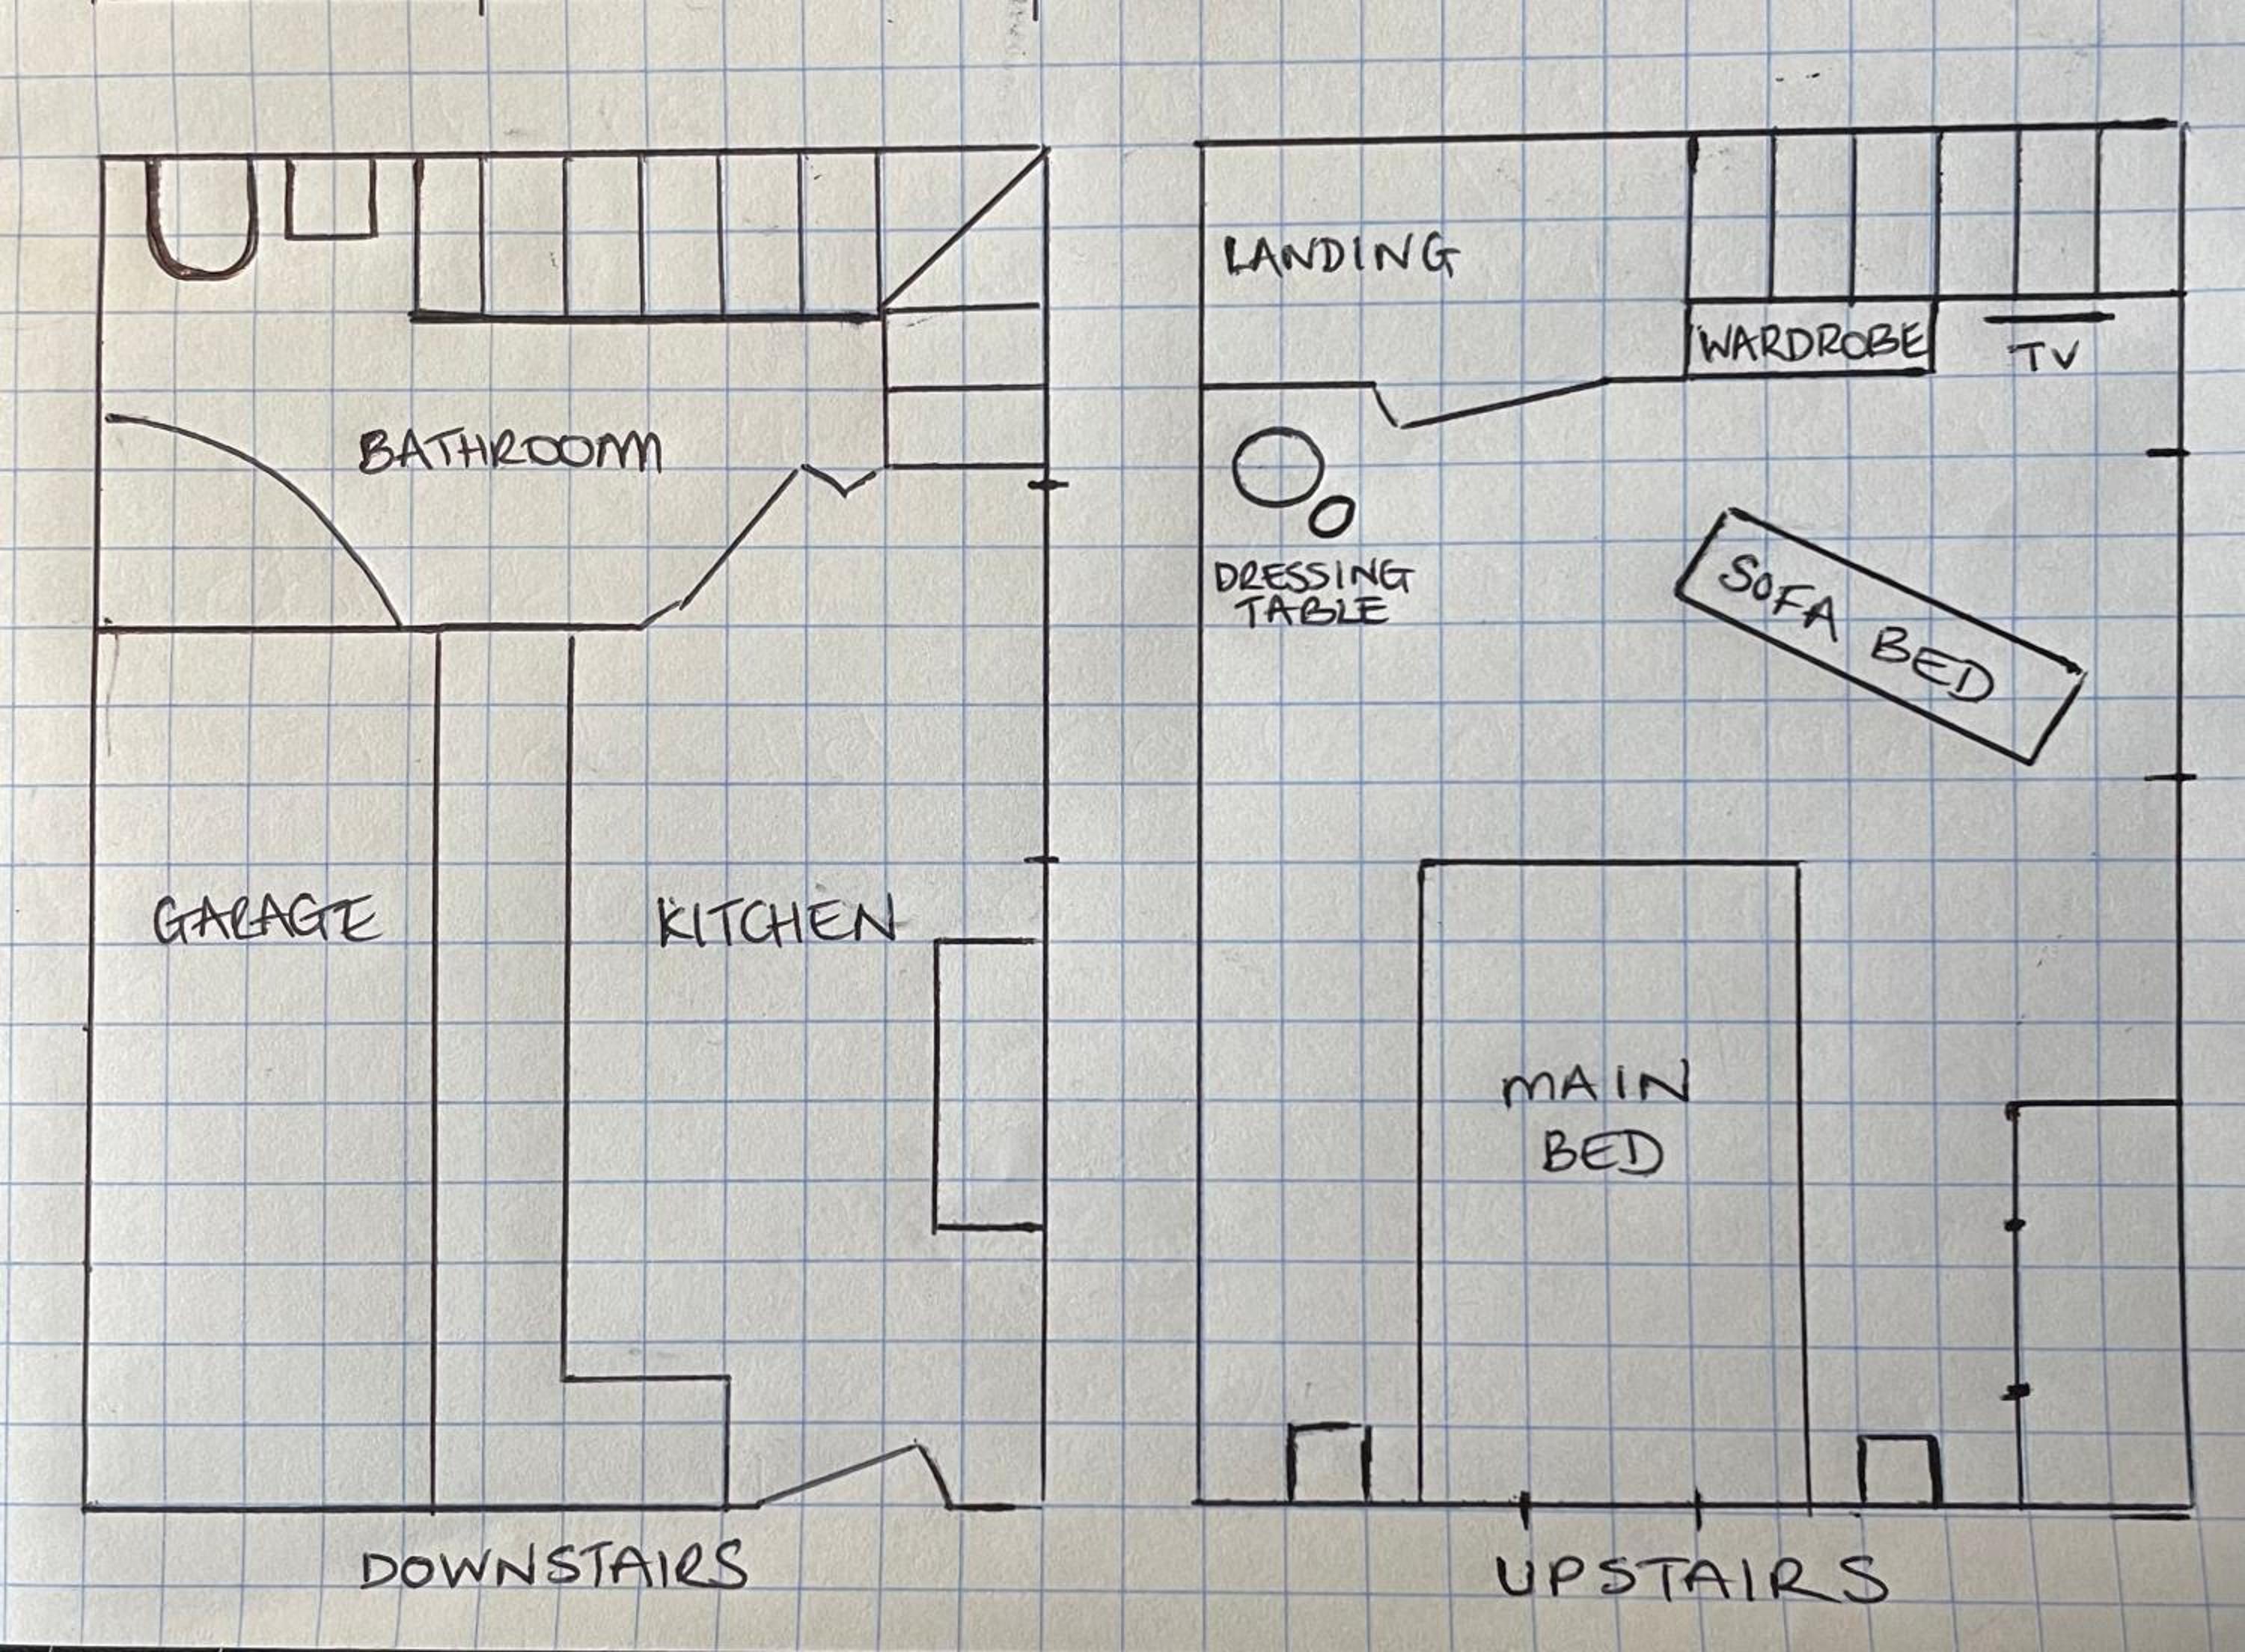 BATHROOM
GARAGE
KITCHEN
DOWNSTAIRS
LANDING
WARDROBE
TV
DRESSING
TABLE
SOFA BED
MAIN
BED
UPSTAIRS